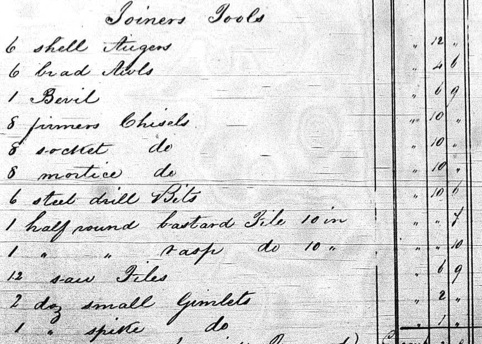 Joiners Tools
6 shell Augers " 12 "
6 brad Awls " 4 6
1 Bevil " 6 9
8 firmers Chisels " 10 "
8 socket do " 10 "
8 mortice do " 10 "
6 steel drill Bits " 10 6
1 half round bastard File 10 in " " 7
1 " " rasp do 10 " " " 10
12 saw Files " 6 9
2 doz small Gimlets " 2 "
1 " spike do " 1 "